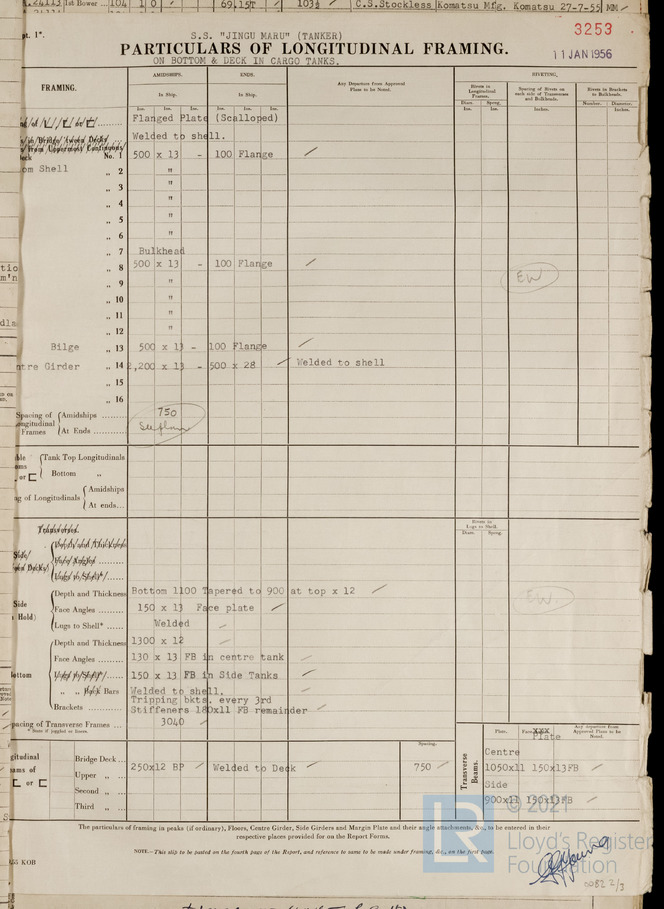 1st Bower 104 1 0 69.15T 103½ C.S.Stockless Komatsu Mfg. Komatsu 27-7-55 MM
3253
pt. 1*. S.S. "JINGU MARU" (TANKER)
PARTICULARS OF LONGITUDINAL FRAMING.
ON BOTTOM & DECK IN CARGO TANKS.
11 JAN 1956
FRAMING. AMIDSHIPS. ENDS. Any Departure from Approved Plans to be Noted. RIVETING.
In Ship. In Ship. Rivets in Longitudinal Frames. Spacing of Rivets on each side of Transverses and Bulkheads. Rivets in Brackets to Bulkheads.
Diam. Spcng. Number. Diameter.
Ins. Ins. Ins. Ins. Ins. Ins. Ins. Ins. Inches. Inches.
Flanged Plate (Scalloped)
Welded to shell.
No. 1 500 x 13 - 100 Flange
om Shell „ 2 "
„ 3 "
„ 4 "
„ 5 "
„ 6 "
„ 7 Bulkhead
„ 8 500 x 13 - 100 Flange
„ 9 " EW
„ 10 "
„ 11 "
„ 12 "
Bilge „ 13 500 x 13 - 100 Flange
ntre Girder „ 14 2,200 x 13 - 500 x 28 Welded to shell
„ 15
„ 16
Spacing of Longitudinal Frames Amidships 750
At Ends See plan
Tank Top Longitudinals
or Bottom „
ng of Longitudinals Amidships
At ends...
Transverses. Rivets in Lugs to Shell.
Diam. Spcng.
Side/ Depth and Thickness
Face Angles
Lugs to Shell*
Side Hold) Depth and Thickness Bottom 1100 Tapered to 900 at top x 12 EW.
Face Angles 150 x 13 Face plate
Lugs to Shell* Welded
Depth and Thickness 1300 x 12
Face Angles 130 x 13 FB in centre tank
ottom Lugs to Shell* 150 x 13 FB in Side Tanks
„ „ Back Bars Welded to shell.
Tripping bkts. every 3rd
Brackets Stiffeners 180x11 FB remainder
pacing of Transverse Frames 3040
* State if joggled or liners.
Spacing. Transverse Beams. Plate. Face XXX Plate Any departure from Approved Plans to be Noted.
gitudinal ams of or Bridge Deck Centre
Upper „ 250x12 BP Welded to Deck 750 1050x11 150x13FB
Second „ Side
Third „ 900x11 150x13FB
The particulars of framing in peaks (if ordinary), Floors, Centre Girder, Side Girders and Margin Plate and their angle attachments, &c., to be entered in their
respective places provided for on the Report Forms.
NOTE.—This slip to be pasted on the fourth page of the Report, and reference to same to be made under framing, &c., on the first page.
55 KOB
© 2021
LR
Lloyd's Register
Foundation
0082 2/3